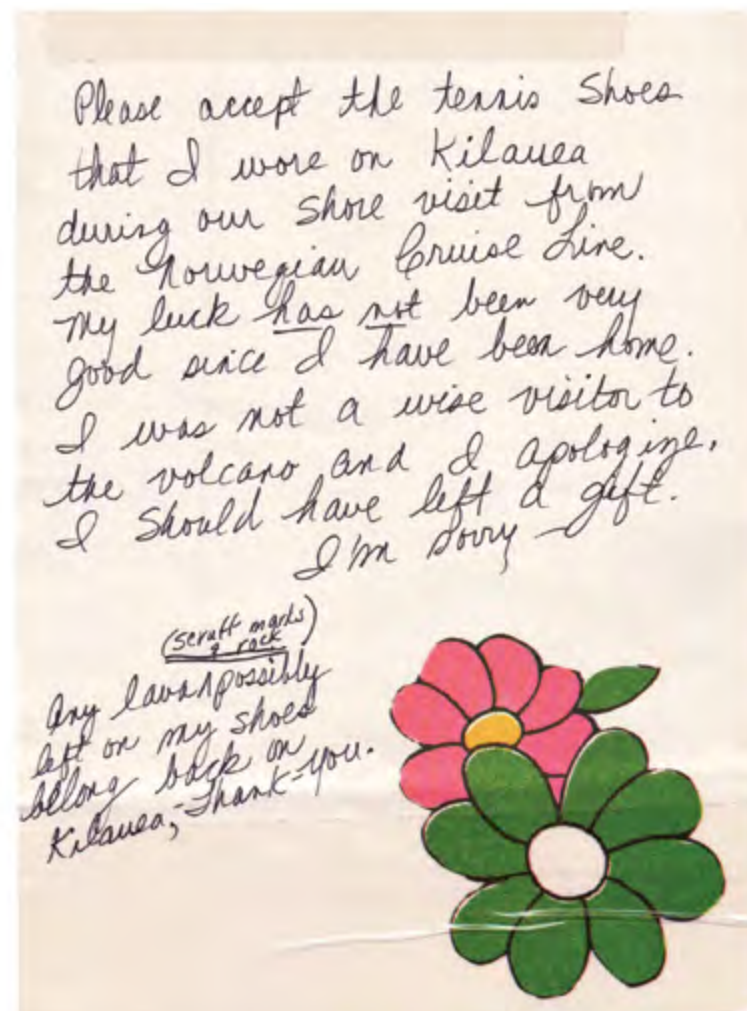 Please accept the tennis Shoes
that I wore on Kilauea
during our Shore visit from
the Norwegian Cruise Line.
My luck has not been very
good since I have been home.
I was not a wise visitor to
the volcano and I apologize.
I Should have left a gift.
I'm sorry
(scruff marks
& rock)
Any lava possibly
left on my shoes
belong back on
Kilauea, Thank-You.